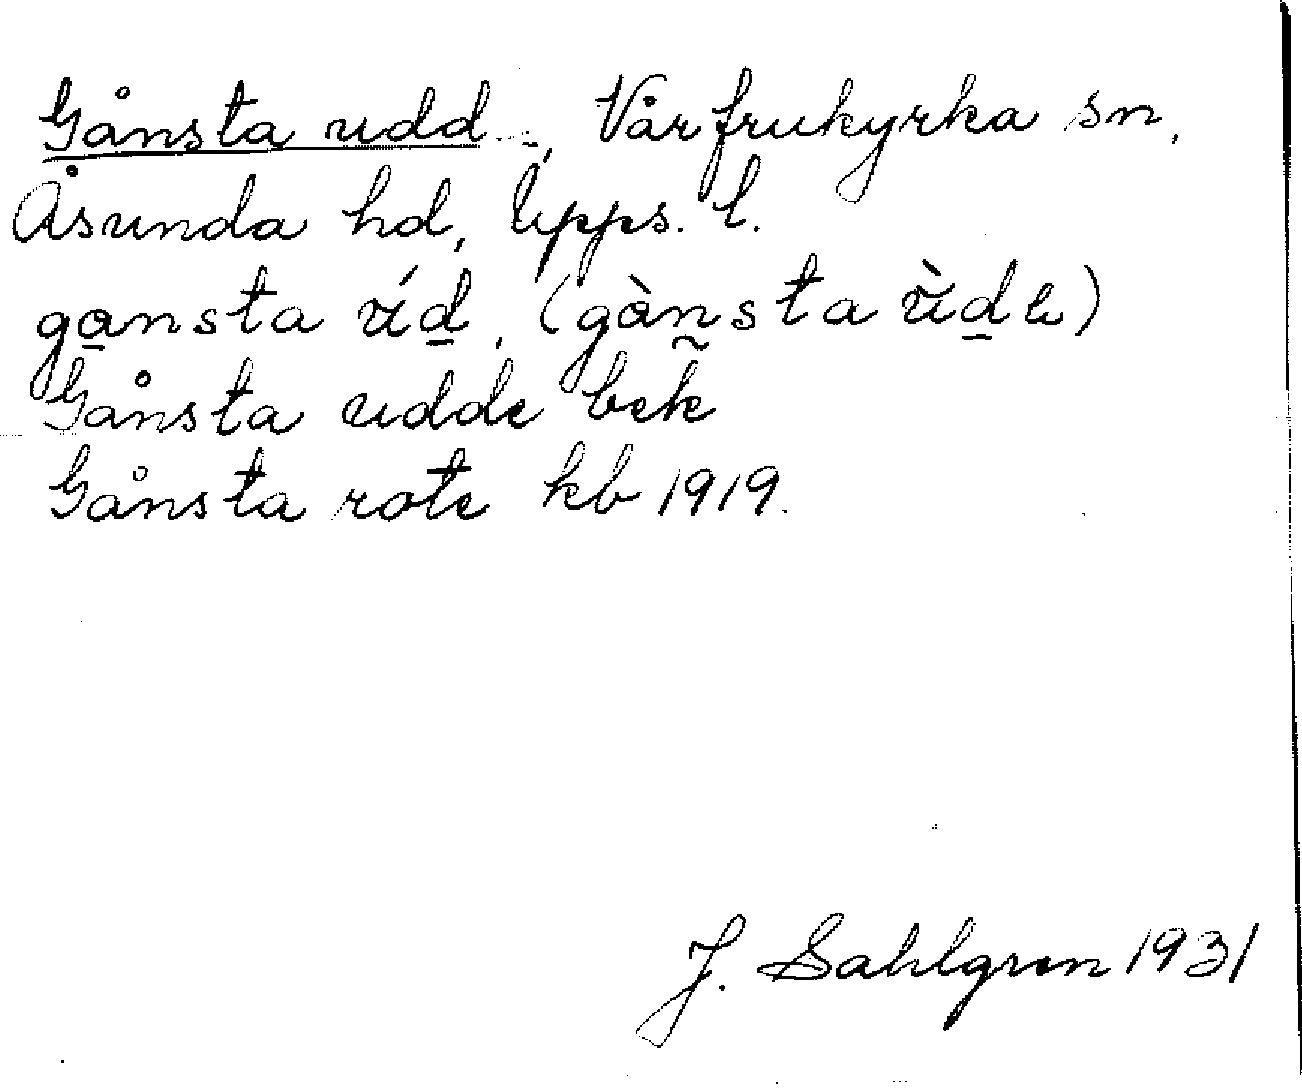 Gånsta udd, Vårfrukyrka sn,
Åsunda hd, Upps. l.
gansta úd, (gànsta ùdɛ)
Gånsta udde bek
Gånsta rote kb 1919.
J. Sahlgren 1931